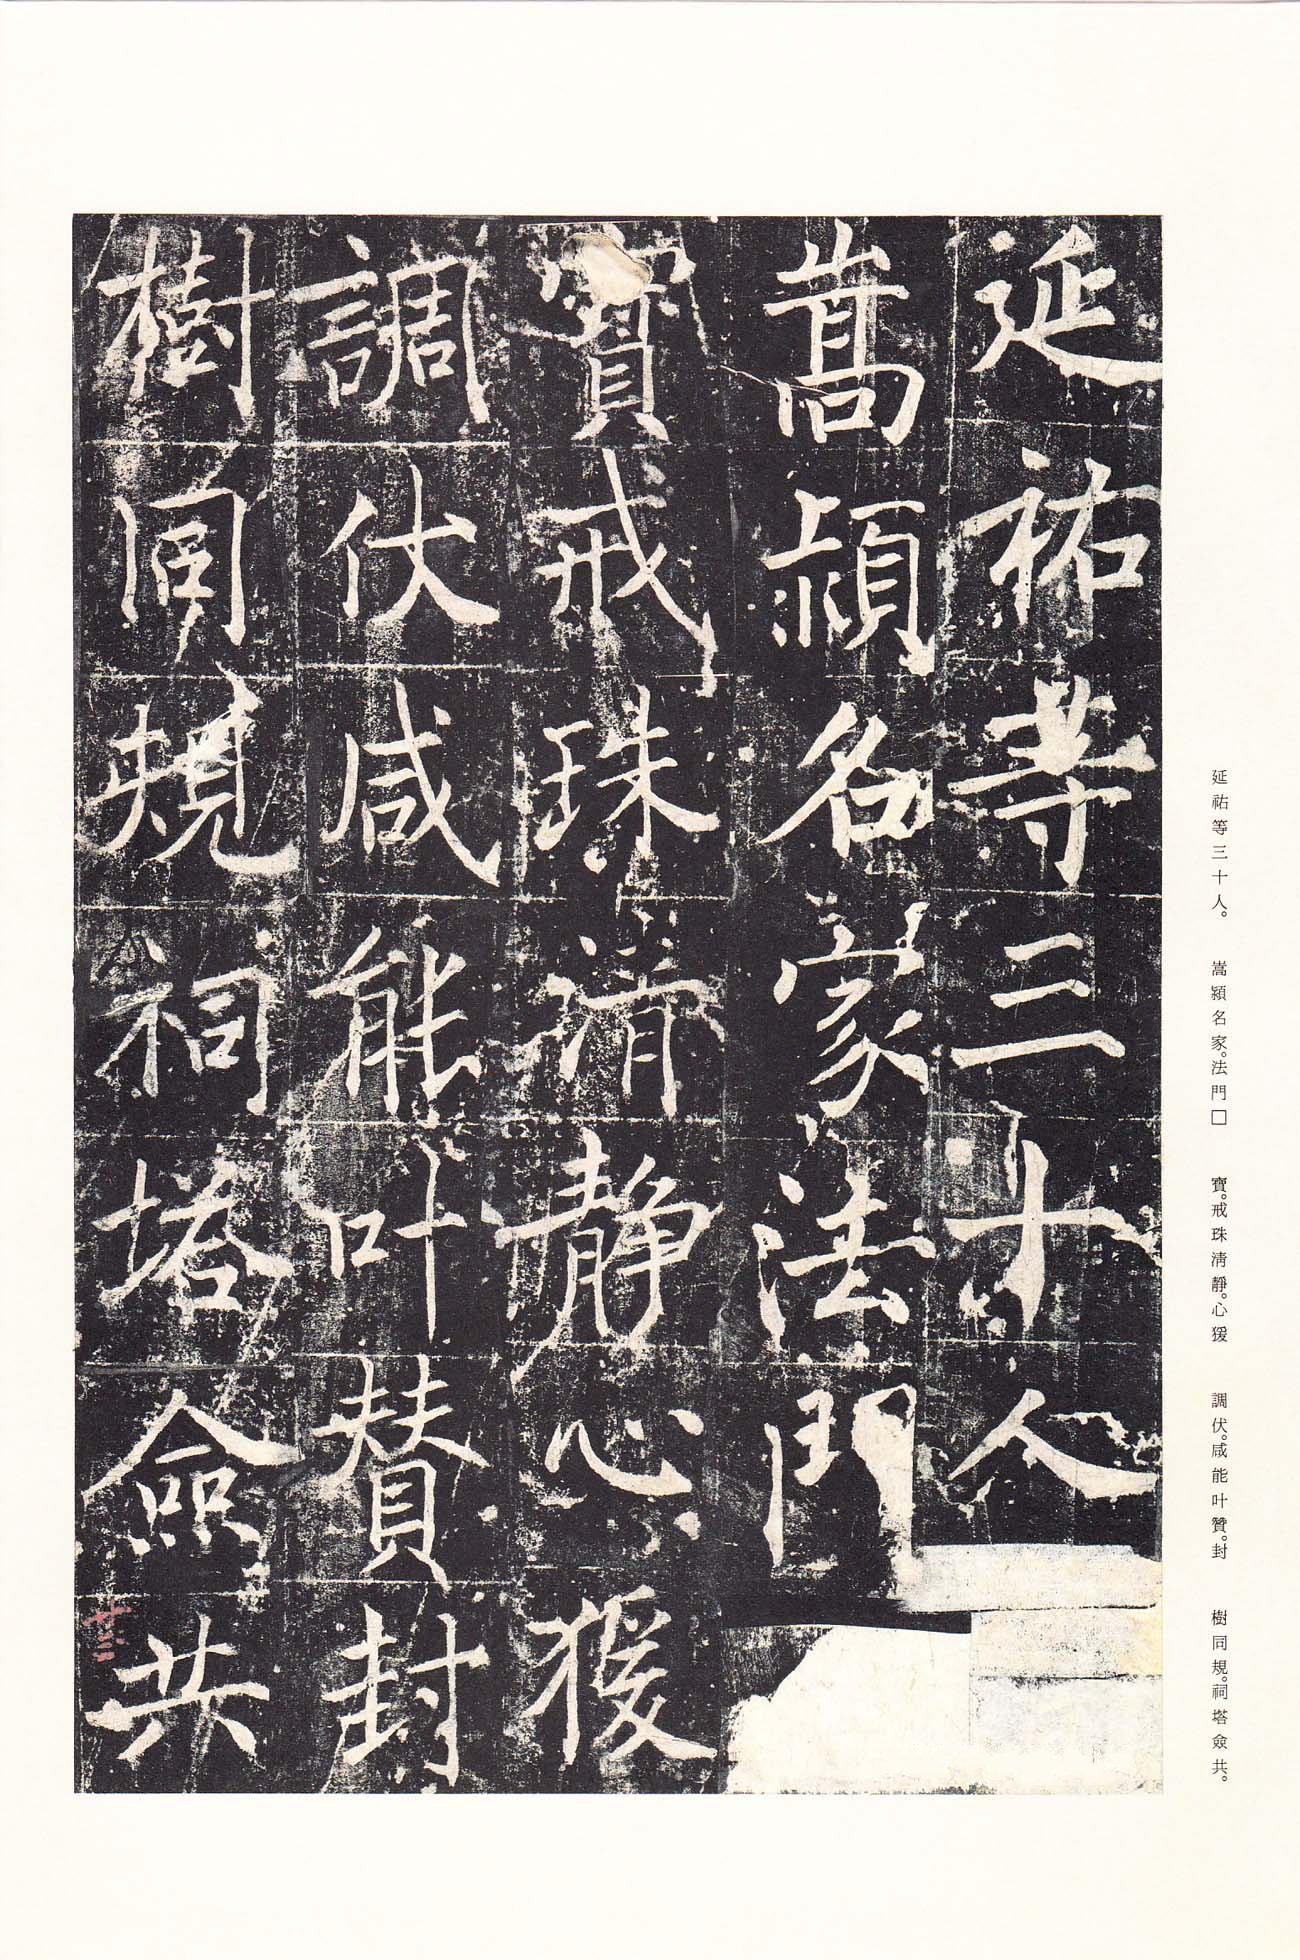 延祐等三十人
嵩潁名家法門
寶戒珠清静心猨
調伏咸能叶賛封
樹同規祠塔僉共
廿二
延祐等三十人。 嵩潁名家。法門□ 寶。戒珠淸靜。心猨 調伏。咸能叶贊。封 樹同規。祠塔僉共。